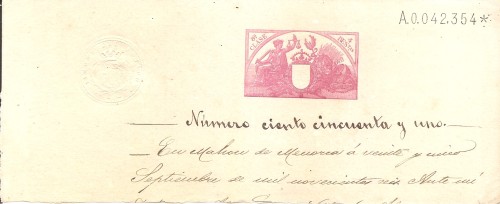 A.0.042,354*
Número ciento cincuenta y uno.
En Mahon de Menorca á veinte y cinco
Septiembre de mil novecientos seis. Ante mí